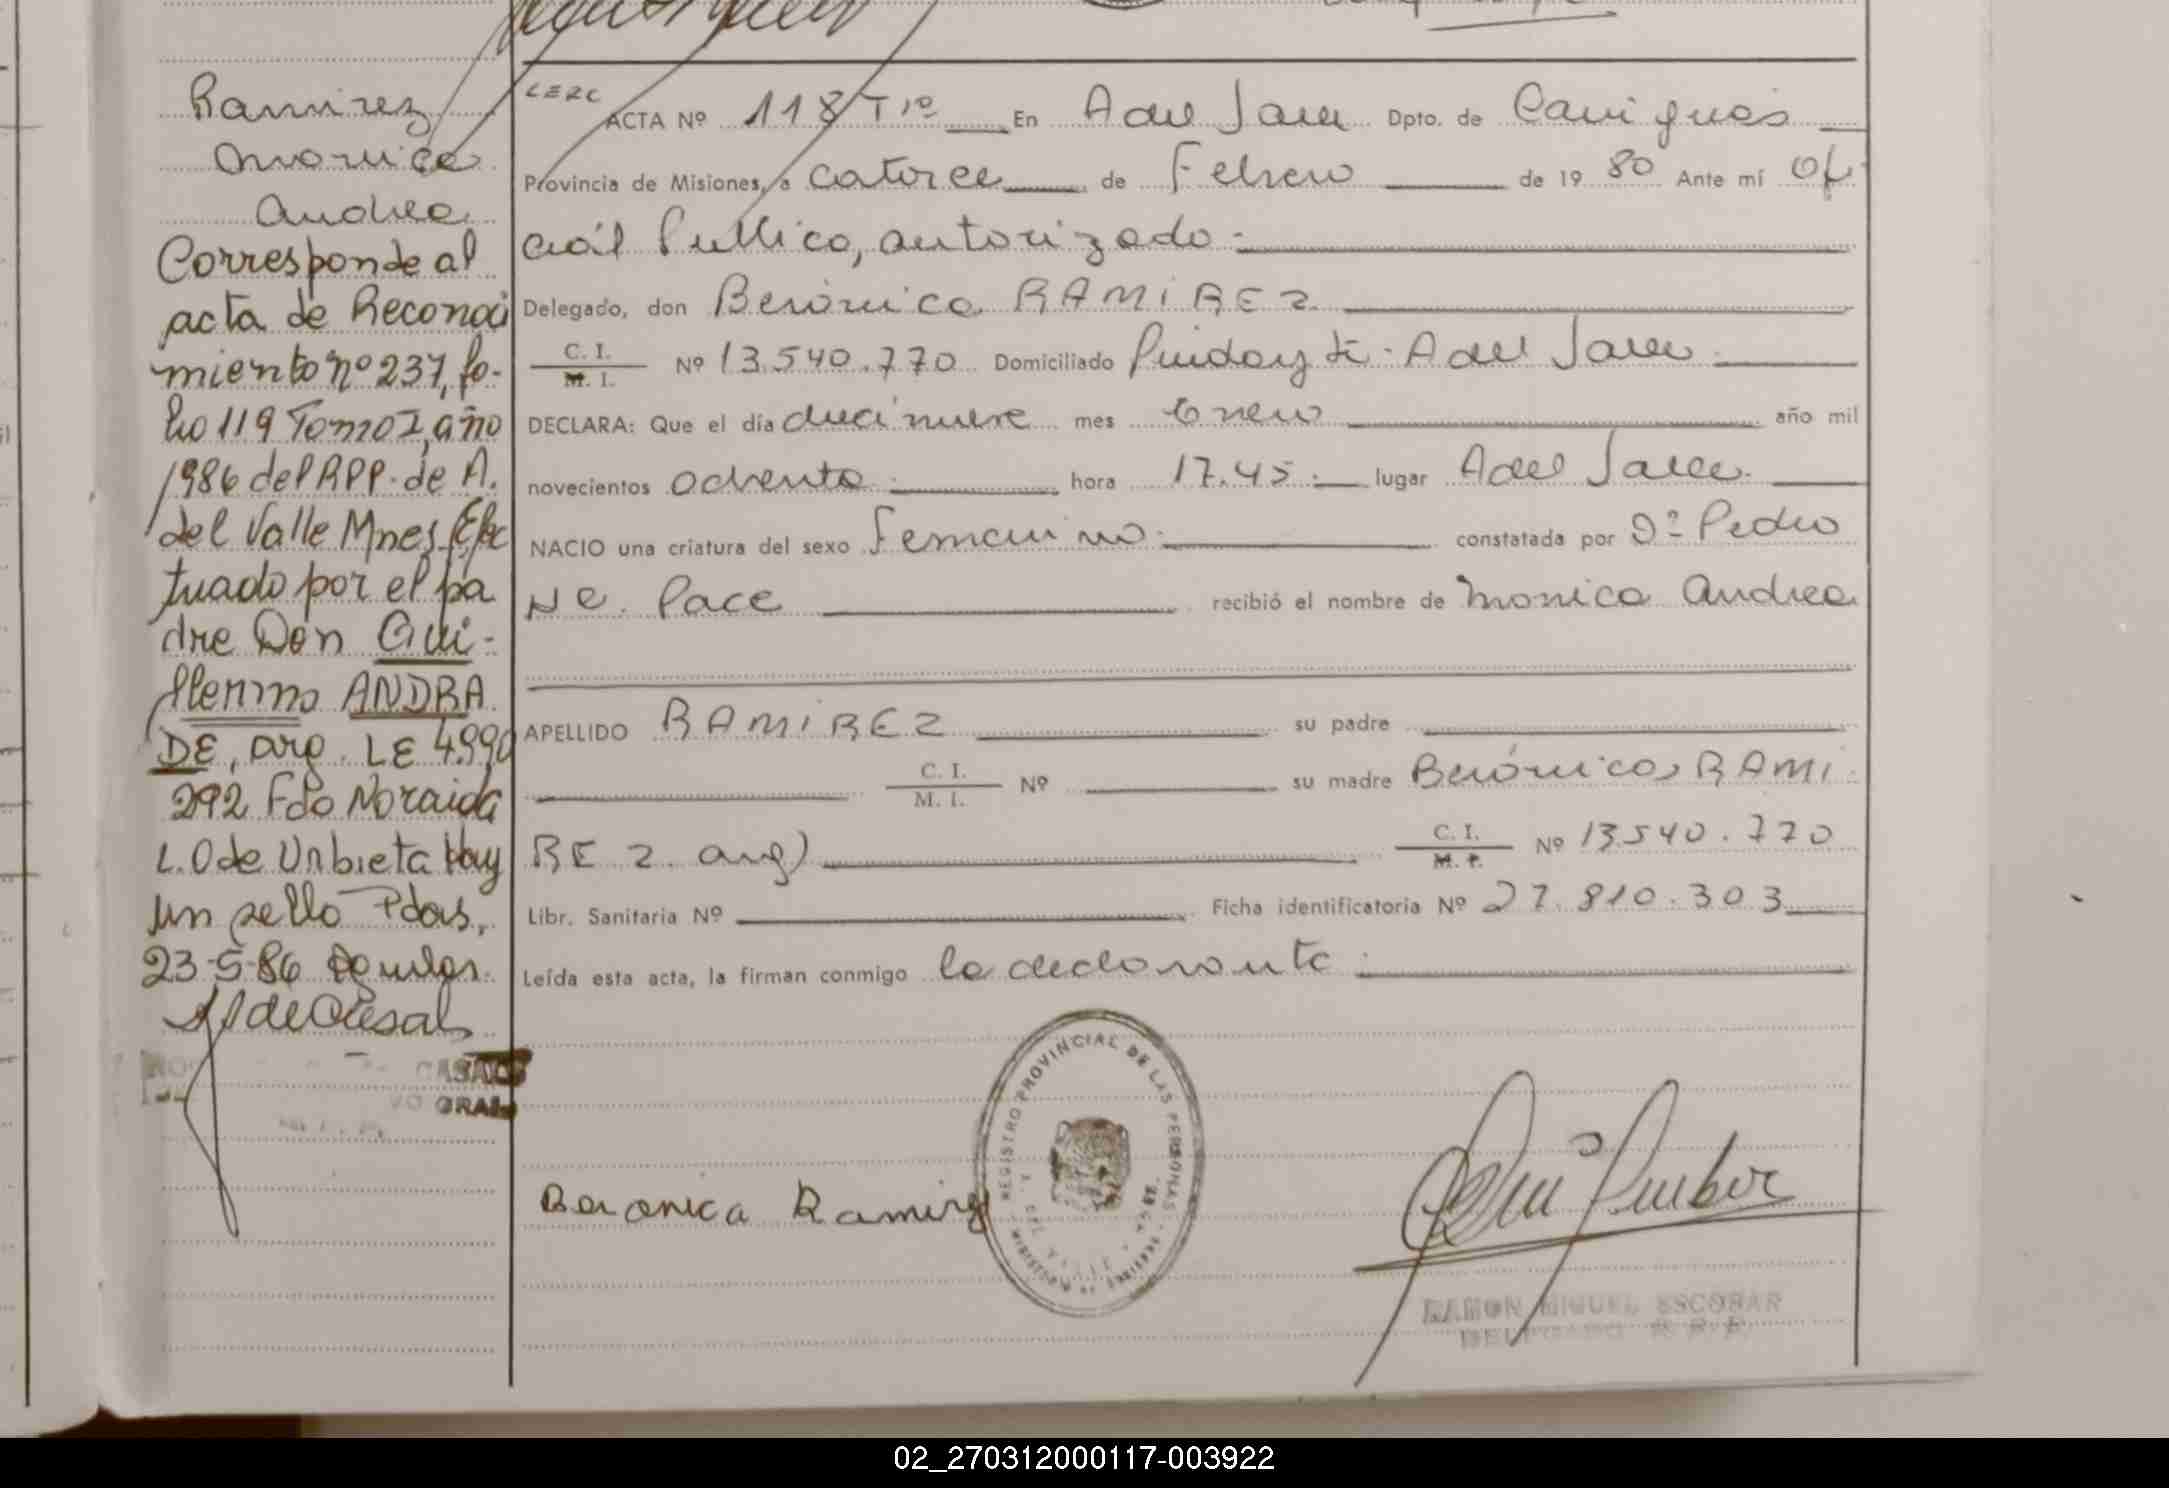 Ramirez
Monica
Andrea
Corresponde al
acta de Reconoci
miento nº 237, fo-
lio 119 Tomo I, año
1986 del RPP. de A.
del Valle Mnes. Efec
tuado por el pa
dre Don Gui-
llermo ANDRA
DE, arg. LE 4.990
292 Fdo Noraida
L.O de Urbieta Hay
un sello Pdas,
23-5-86
CASAL
GRAL
ACTA Nº 118 Tº En A del Valle Dpto. de Cainguás
Provincia de Misiones, a catorce de Febrero de 19 80 Ante mí Ofi
cial Publico, autorizado.
Delegado, don Berónica RAMIREZ
C. I. / M. I. Nº 13.540.770 Domiciliado Pindayti - A del Valle
DECLARA: Que el día diecinueve mes Enero año mil
novecientos ochenta hora 17.45. lugar A del Valle.
NACIO una criatura del sexo Femenino. constatada por Dº Pedro
Ne. Pace recibió el nombre de Monica Andrea
APELLIDO RAMIREZ su padre
C. I. / M. I. Nº su madre Berónica, RAMI
REZ. arg) C. I. / M. I. Nº 13.540.770
Libr. Sanitaria Nº Ficha identificatoria Nº 27.810.303
Leída esta acta, la firman conmigo la declarante
REGISTRO PROVINCIAL DE LAS PERSONAS
Beronica Ramirez
RAMON MIGUEL ESCOBAR
DELEGADO R.P.P.
02_270312000117-003922